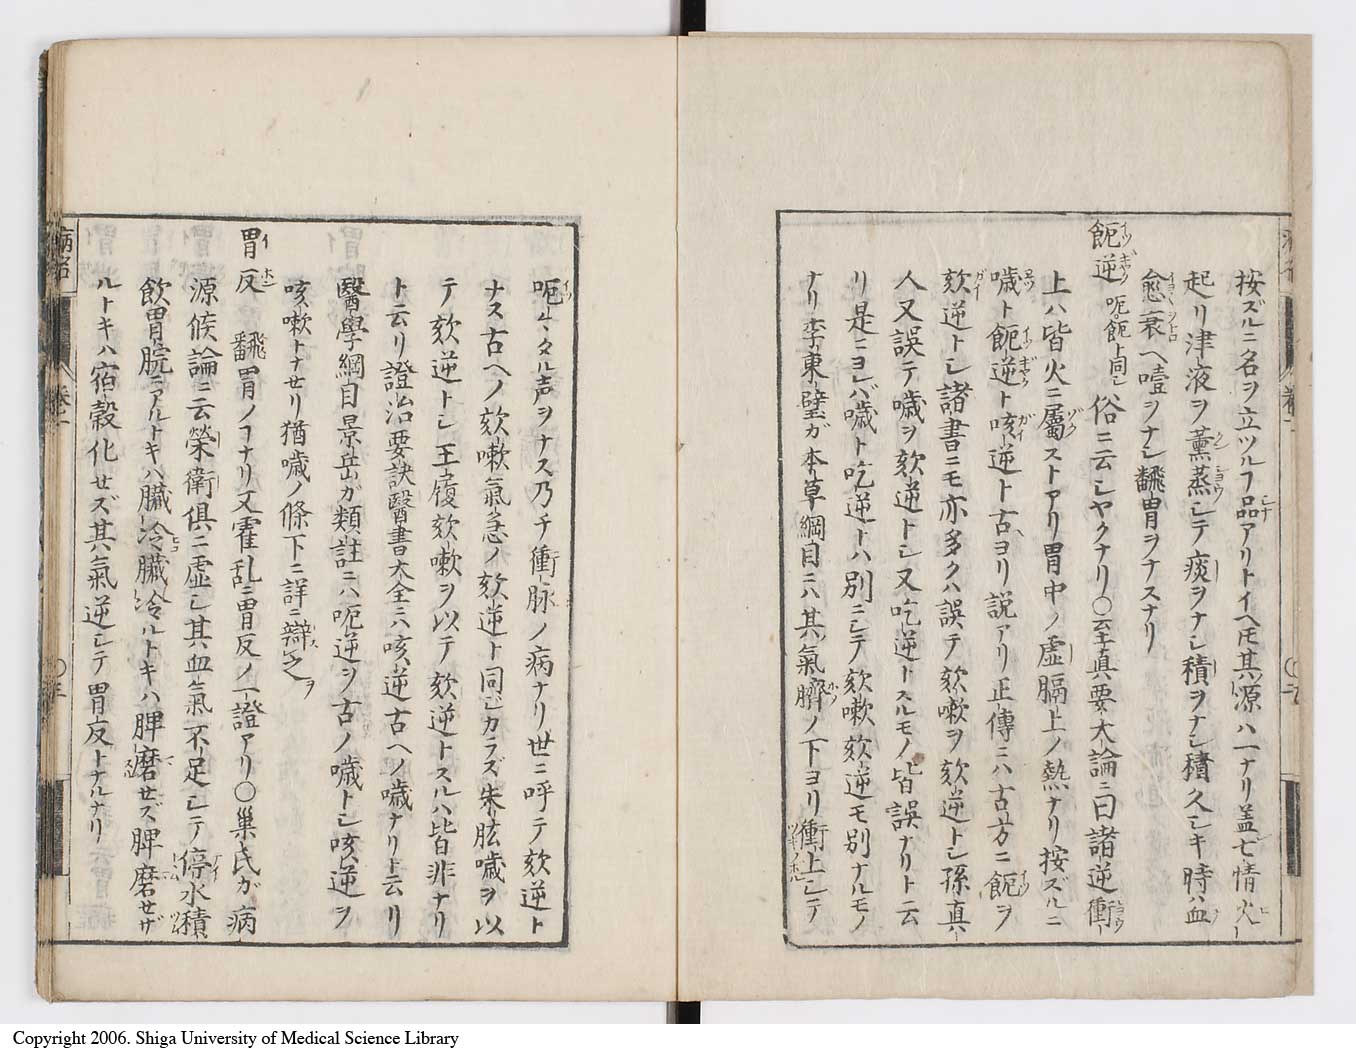 按ズルニ名ヲ立ツルヿ品アリトイヘ𪜈其源ハ一ナリ盖七情火
起リ津液ヲ薫蒸シテ痰ヲナシ積ヲナシ積久シキ時ハ血
愈衰ヘ噎ヲナシ飜胃ヲナスナリ
䭇逆 呃䭇ト同シ 俗ニ云シヤクナリ〇至真要大論ニ曰諸逆衝
上ハ皆火ニ屬ストアリ胃中ノ虚膈上ノ熱ナリ按ズルニ
噦ト䭇逆ト咳逆ト古ヨリ説アリ正傳ニハ古方ニ䭇ヲ
欬逆トシ諸書ニモ亦多クハ誤テ欬嗽ヲ欬逆トシ孫真
人又誤テ噦ヲ欬逆トシ又吃逆トスルモノ皆誤ナリト云
リ是ニヨレバ噦ト吃逆トハ別ニシテ欬嗽欬逆モ別ナルモノ
ナリ李東璧ガ本草綱目ニハ其氣臍ノ下ヨリ衝上シテ
呃々タル声ヲナス乃チ衝脉ノ病ナリ世ニ呼テ欬逆ト
ナス古ヘノ欬嗽氣急ノ欬逆ト同ジカラズ朱肱噦ヲ以
テ欬逆トシ王履欬嗽ヲ以テ欬逆トスルハ皆非ナリ
ト云リ證治要訣醫書大全ニハ咳逆古ヘノ噦ナリト云リ
醫學綱目景岳ガ類註ニハ呃逆ヲ古ノ噦トシ咳逆ヲ
咳嗽トナセリ猶噦ノ條下ニ詳ニ辯之
胃反 飜胃ノヿナリ又霍乱ニ胃反ノ一證アリ〇巢氏ガ病
源候論ニ云榮衛俱ニ虚シ其血氣不足シテ停水積
飲胃脘ニアルトキハ臓冷臓冷ルトキハ脾磨セズ脾磨セザ
ルトキハ宿穀化セズ其氣逆シテ胃反トナルナリ
病名
卷二
〇三
Copyright 2006. Shiga University of Medical Science Library